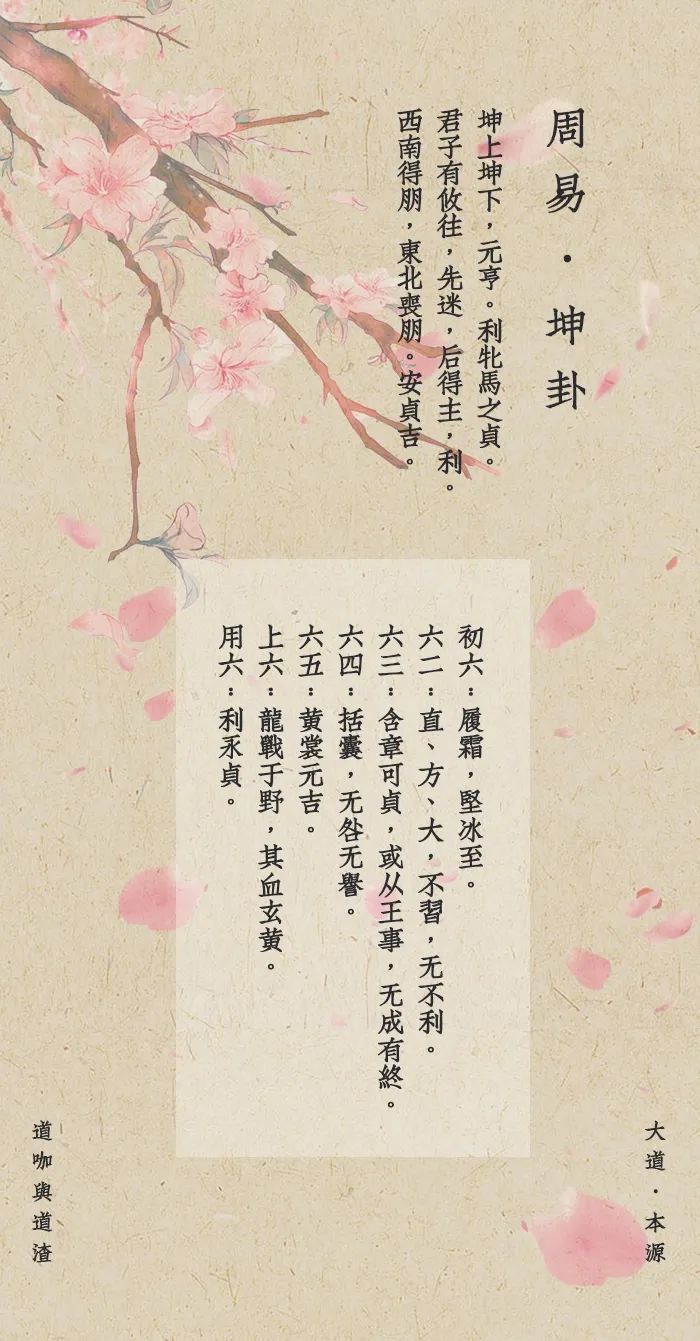 周易·坤卦
坤上坤下，元亨。利牝馬之貞。
君子有攸往，先迷，后得主，利。
西南得朋，東北喪朋。安貞吉。
初六：履霜，堅冰至。
六二：直、方、大，不習，无不利。
六三：含章可貞，或从王事，无成有終。
六四：括囊，无咎无譽。
六五：黄裳元吉。
上六：龍戰于野，其血玄黄。
用六：利永貞。
大道·本源
道咖與道渣